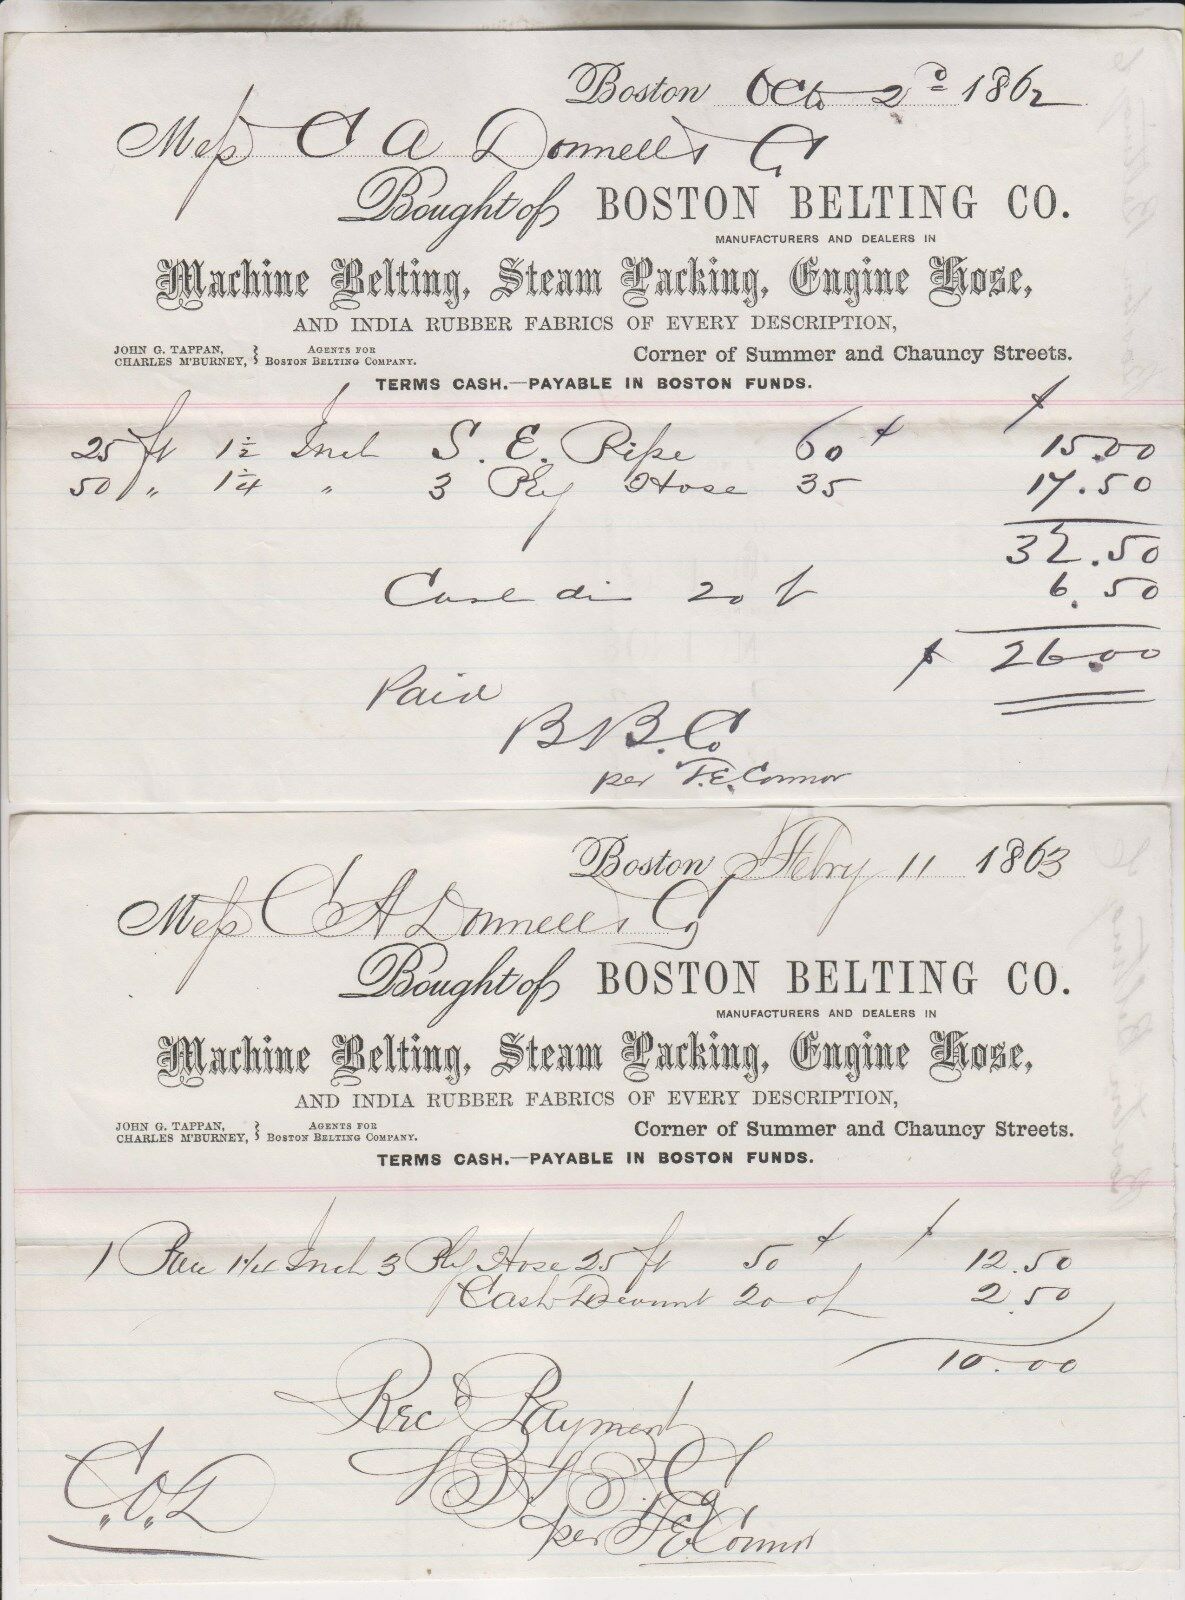 Boston Oct 2d 1862
Mess C A Donnell & Co
Bought of BOSTON BELTING CO.
MANUFACTURERS AND DEALERS IN
Machine Belting, Steam Packing, Engine Hose,
AND INDIA RUBBER FABRICS OF EVERY DESCRIPTION,
JOHN G. TAPPAN, CHARLES M'BURNEY, } AGENTS FOR BOSTON BELTING COMPANY. Corner of Summer and Chauncy Streets.
TERMS CASH.—PAYABLE IN BOSTON FUNDS.
25 ft 1 1/2 Inch S. E. Pipe 60 ¢ $ 15.00
50 " 1 1/4 " 3 Ply Hose 35 17.50
32.50
Cash dis 20 % 6.50
$ 26.00
Paid
B B. Co
per F. E. Connor
Boston Febry 11 1863
Mess C A Donnell & Co
Bought of BOSTON BELTING CO.
MANUFACTURERS AND DEALERS IN
Machine Belting, Steam Packing, Engine Hose,
AND INDIA RUBBER FABRICS OF EVERY DESCRIPTION,
JOHN G. TAPPAN, CHARLES M'BURNEY, } AGENTS FOR BOSTON BELTING COMPANY. Corner of Summer and Chauncy Streets.
TERMS CASH.—PAYABLE IN BOSTON FUNDS.
1 1 1/4 Inch 3 Ply Hose 25 ft 50 ¢ $ 12.50
Cash Discount 20 % 2.50
10.00
Recd Payment
B B Co
per F E Connor